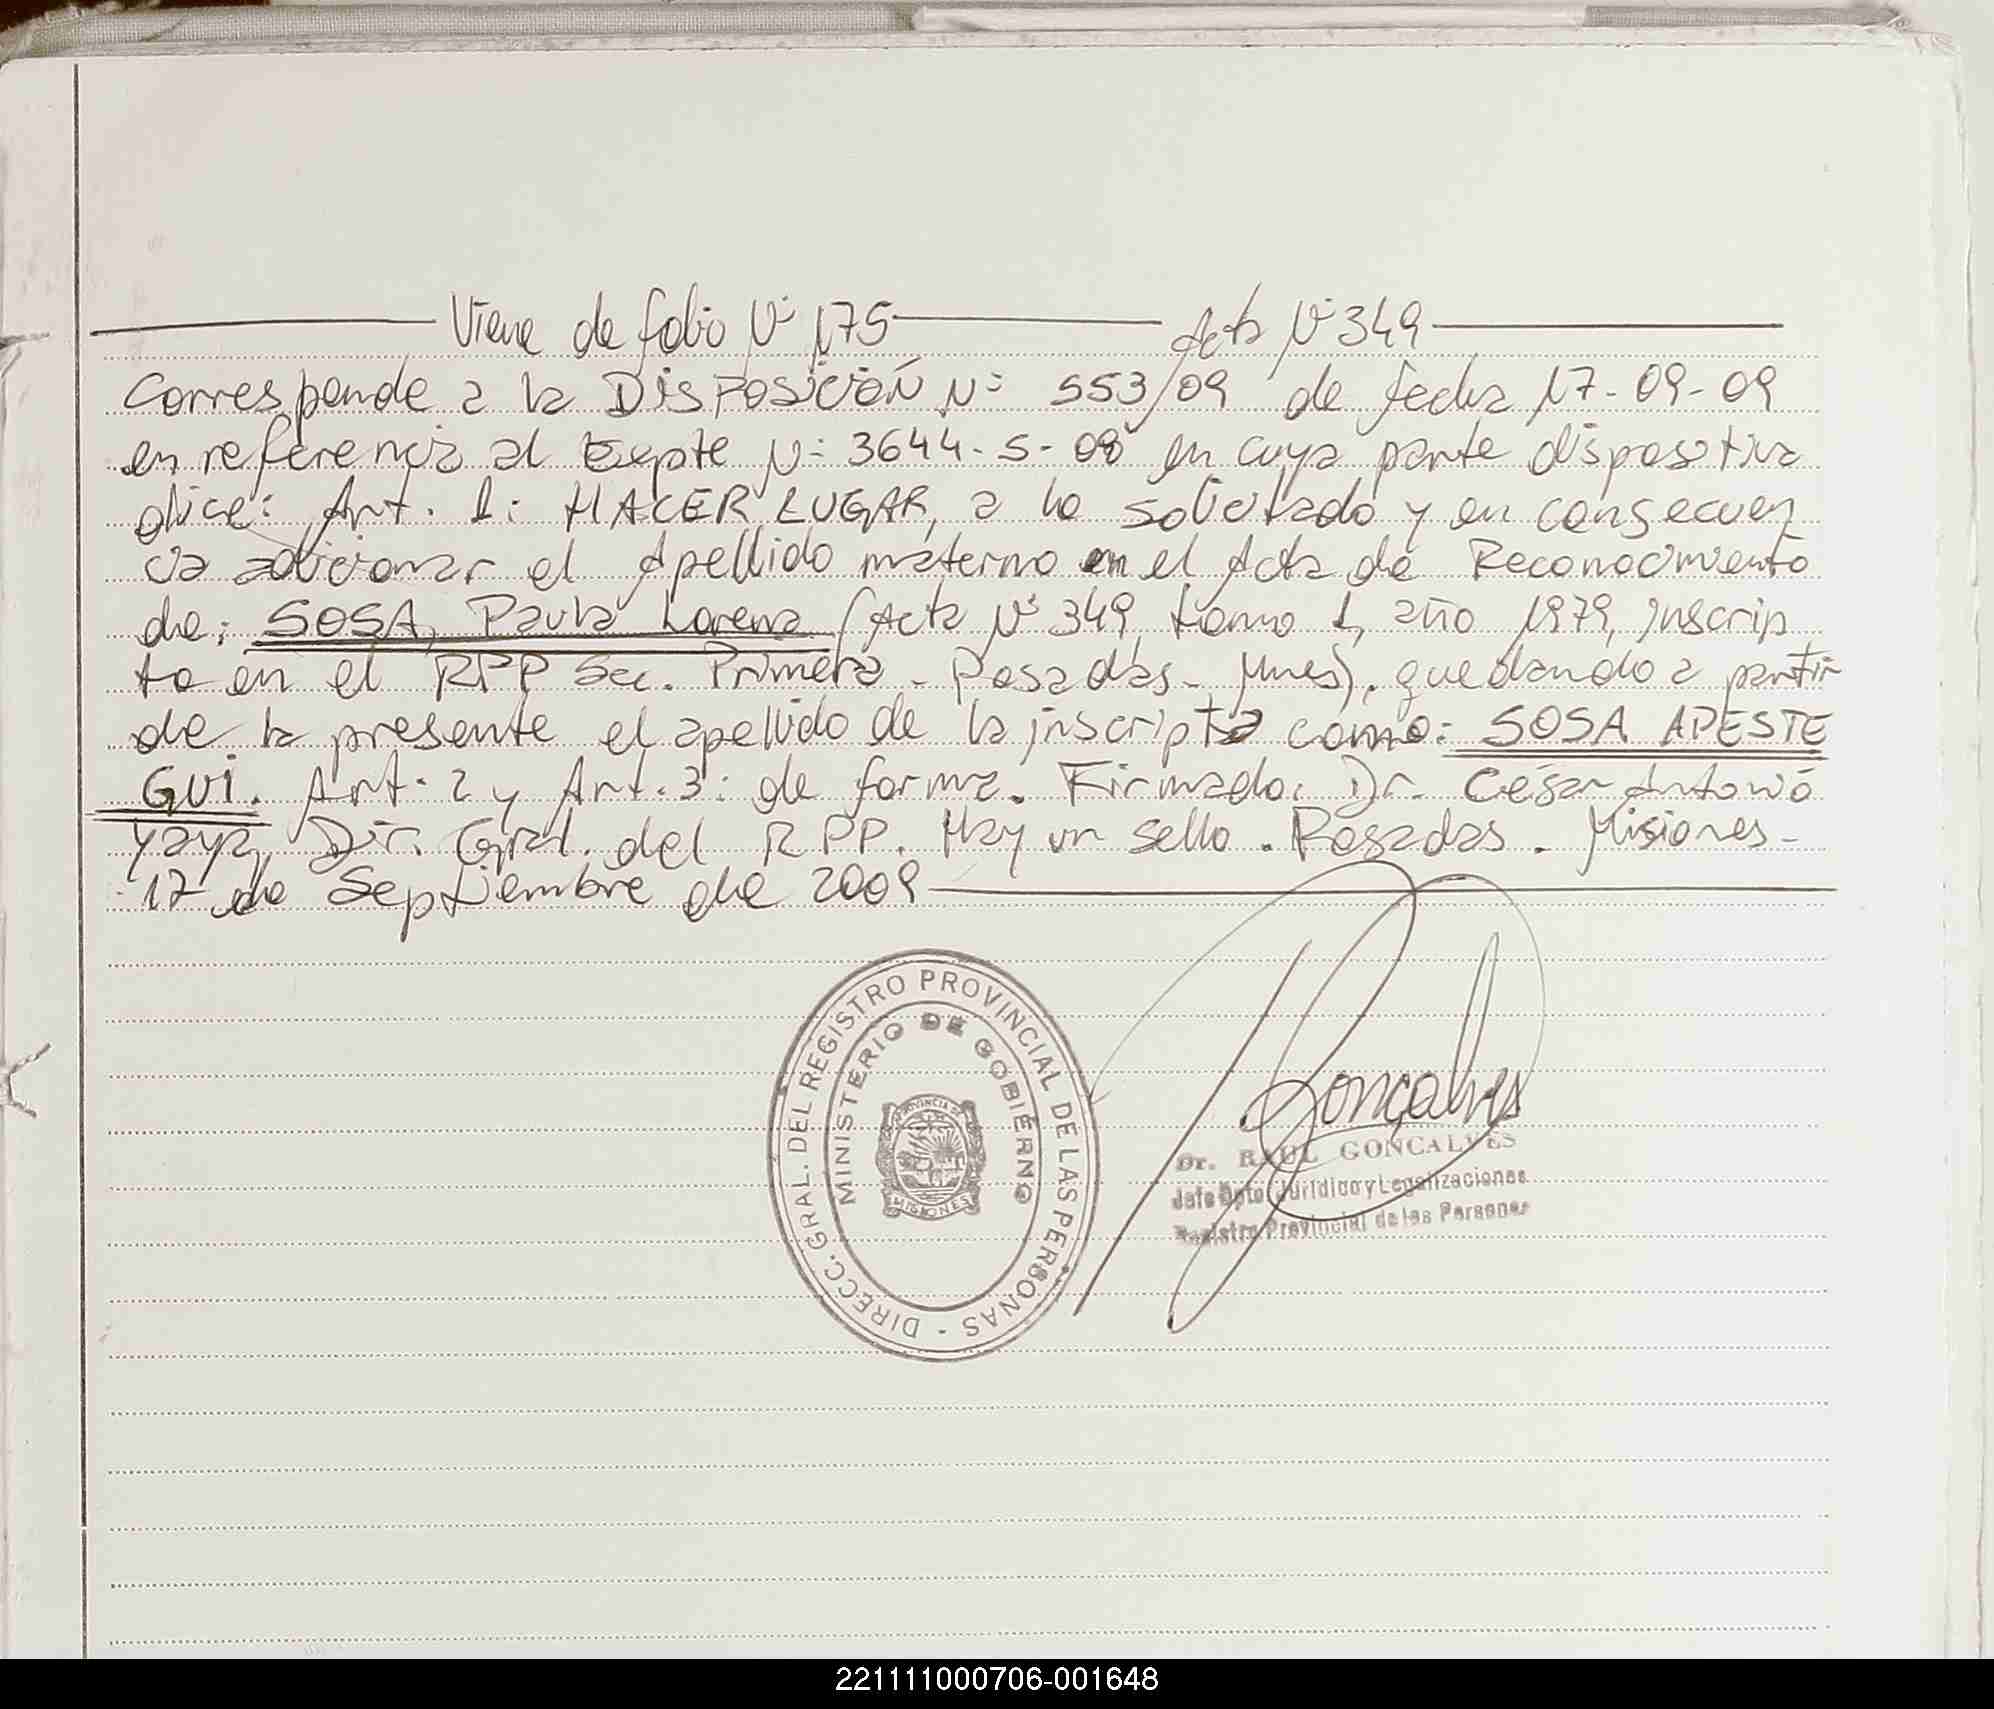 Viene de folio Nº 175 Acta Nº 349
Corresponde a la DISPOSICIÓN Nº 553/09 de fecha 17-09-09
en referencia al Expte Nº 3644-S-08 en cuya parte dispositiva
dice: Art. 1: HACER LUGAR, a lo solicitado y en consecuen
cia adicionar el Apellido materno en el Acta de Reconocimiento
de: SOSA, Paula Lorena (Acta Nº 349, tomo 1, año 1979, inscrip
to en el RPP Sec. Primera - Posadas - Mnes). quedando a partir
de la presente el apellido de la inscripta como: SOSA APESTE
GUI. Art. 2 y Art. 3: de forma. Firmado: Dr. César Antonio
Yaya, Dir. Gral. del RPP. Hay un sello. Posadas. Misiones-
17 de Septiembre de 2009
DIRECC. GRAL. DEL REGISTRO PROVINCIAL DE LAS PERSONAS -
MINISTERIO DE GOBIERNO
PROVINCIA DE
MISIONES
Gonçalves
Dr. RAUL GONCALVES
Jefe Dpto. Jurídico y Legalizaciones
Registro Provincial de las Personas
221111000706-001648